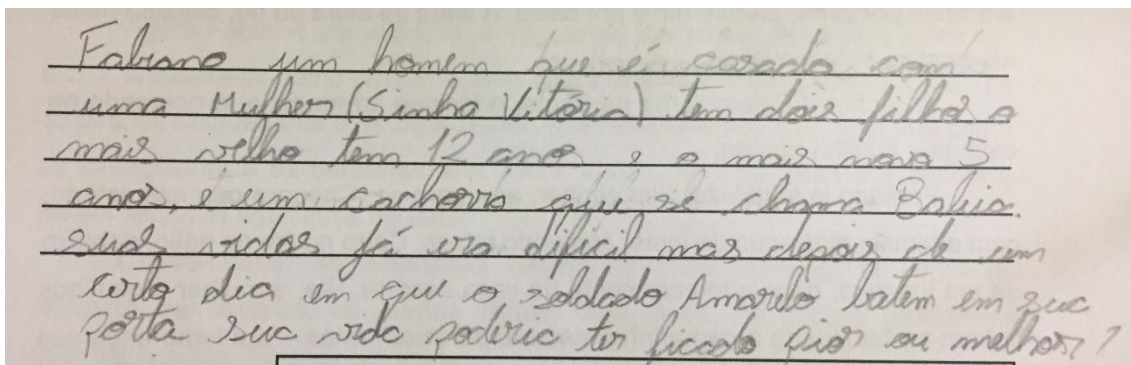 Fabiano um homem que é casado com
uma Mulher (Sinha Vitória) tem dois filhos o
mais velho tem 12 anos e o mais novo 5
anos, e um cachorro que se chama Baleia.
suas vidas já era dificil mas depois de um
certo dia em que o soldado Amarelo batem em sua
porta sua vida poderia ter ficado pior ou melhor?